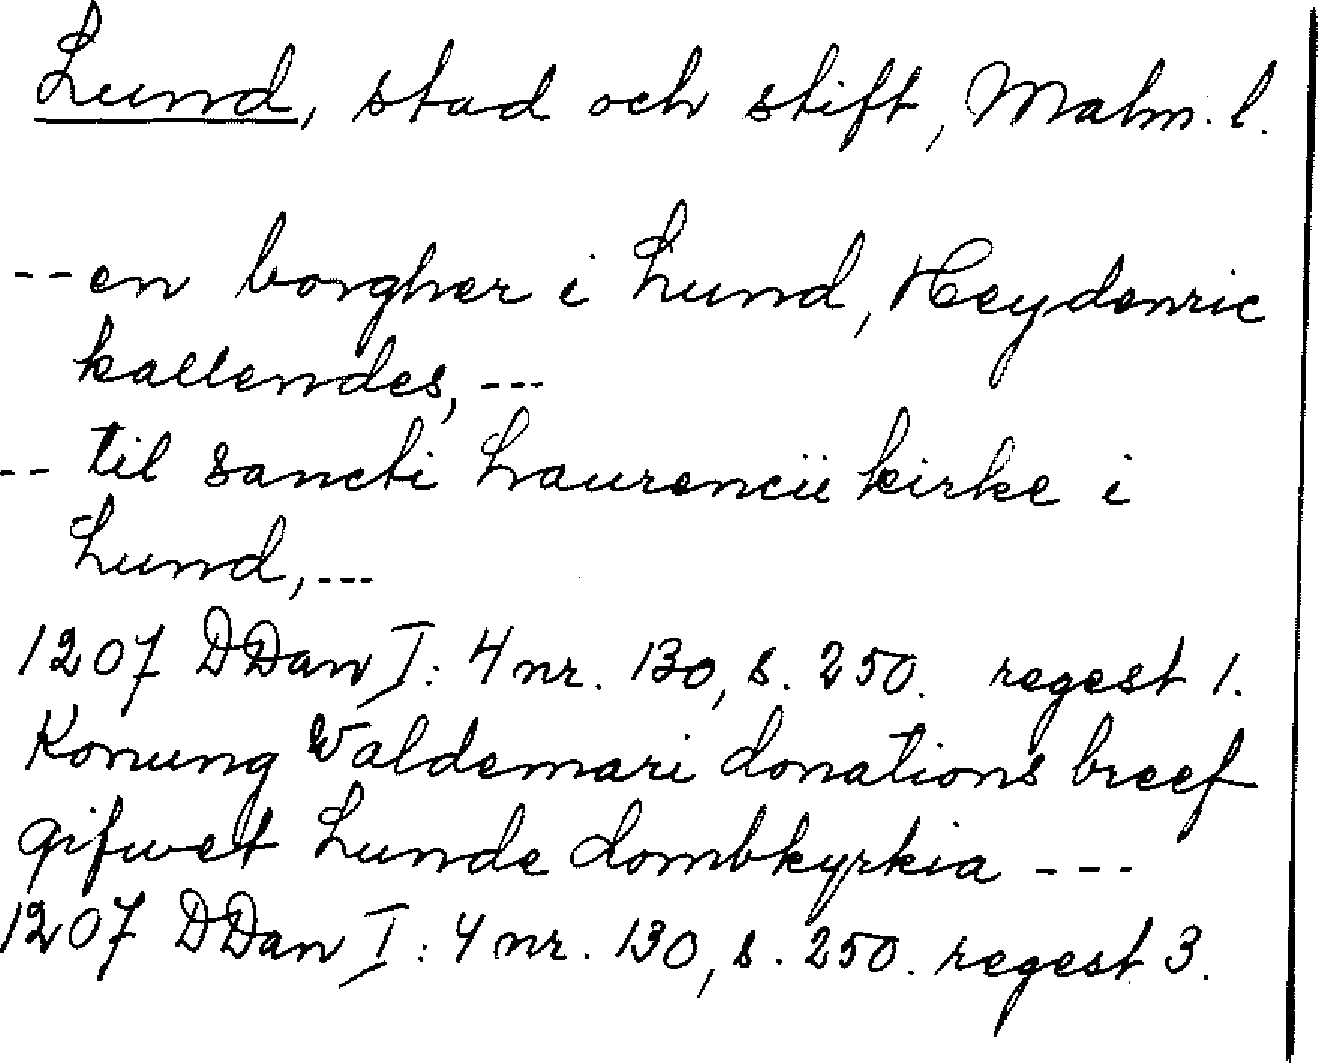 Lund, stad och stift, Malm. l.
--en borgher i Lund, Heydenric
kallendes, ---
-- til sancti Laurencii kirke i
Lund, ---
1207 DDan I: 4 nr. 130, s. 250. regest 1.
Konung Waldemari donations breef
gifwet Lunde dombkyrkia ---
1207 DDan I: 4 nr. 130, s. 250. regest 3.